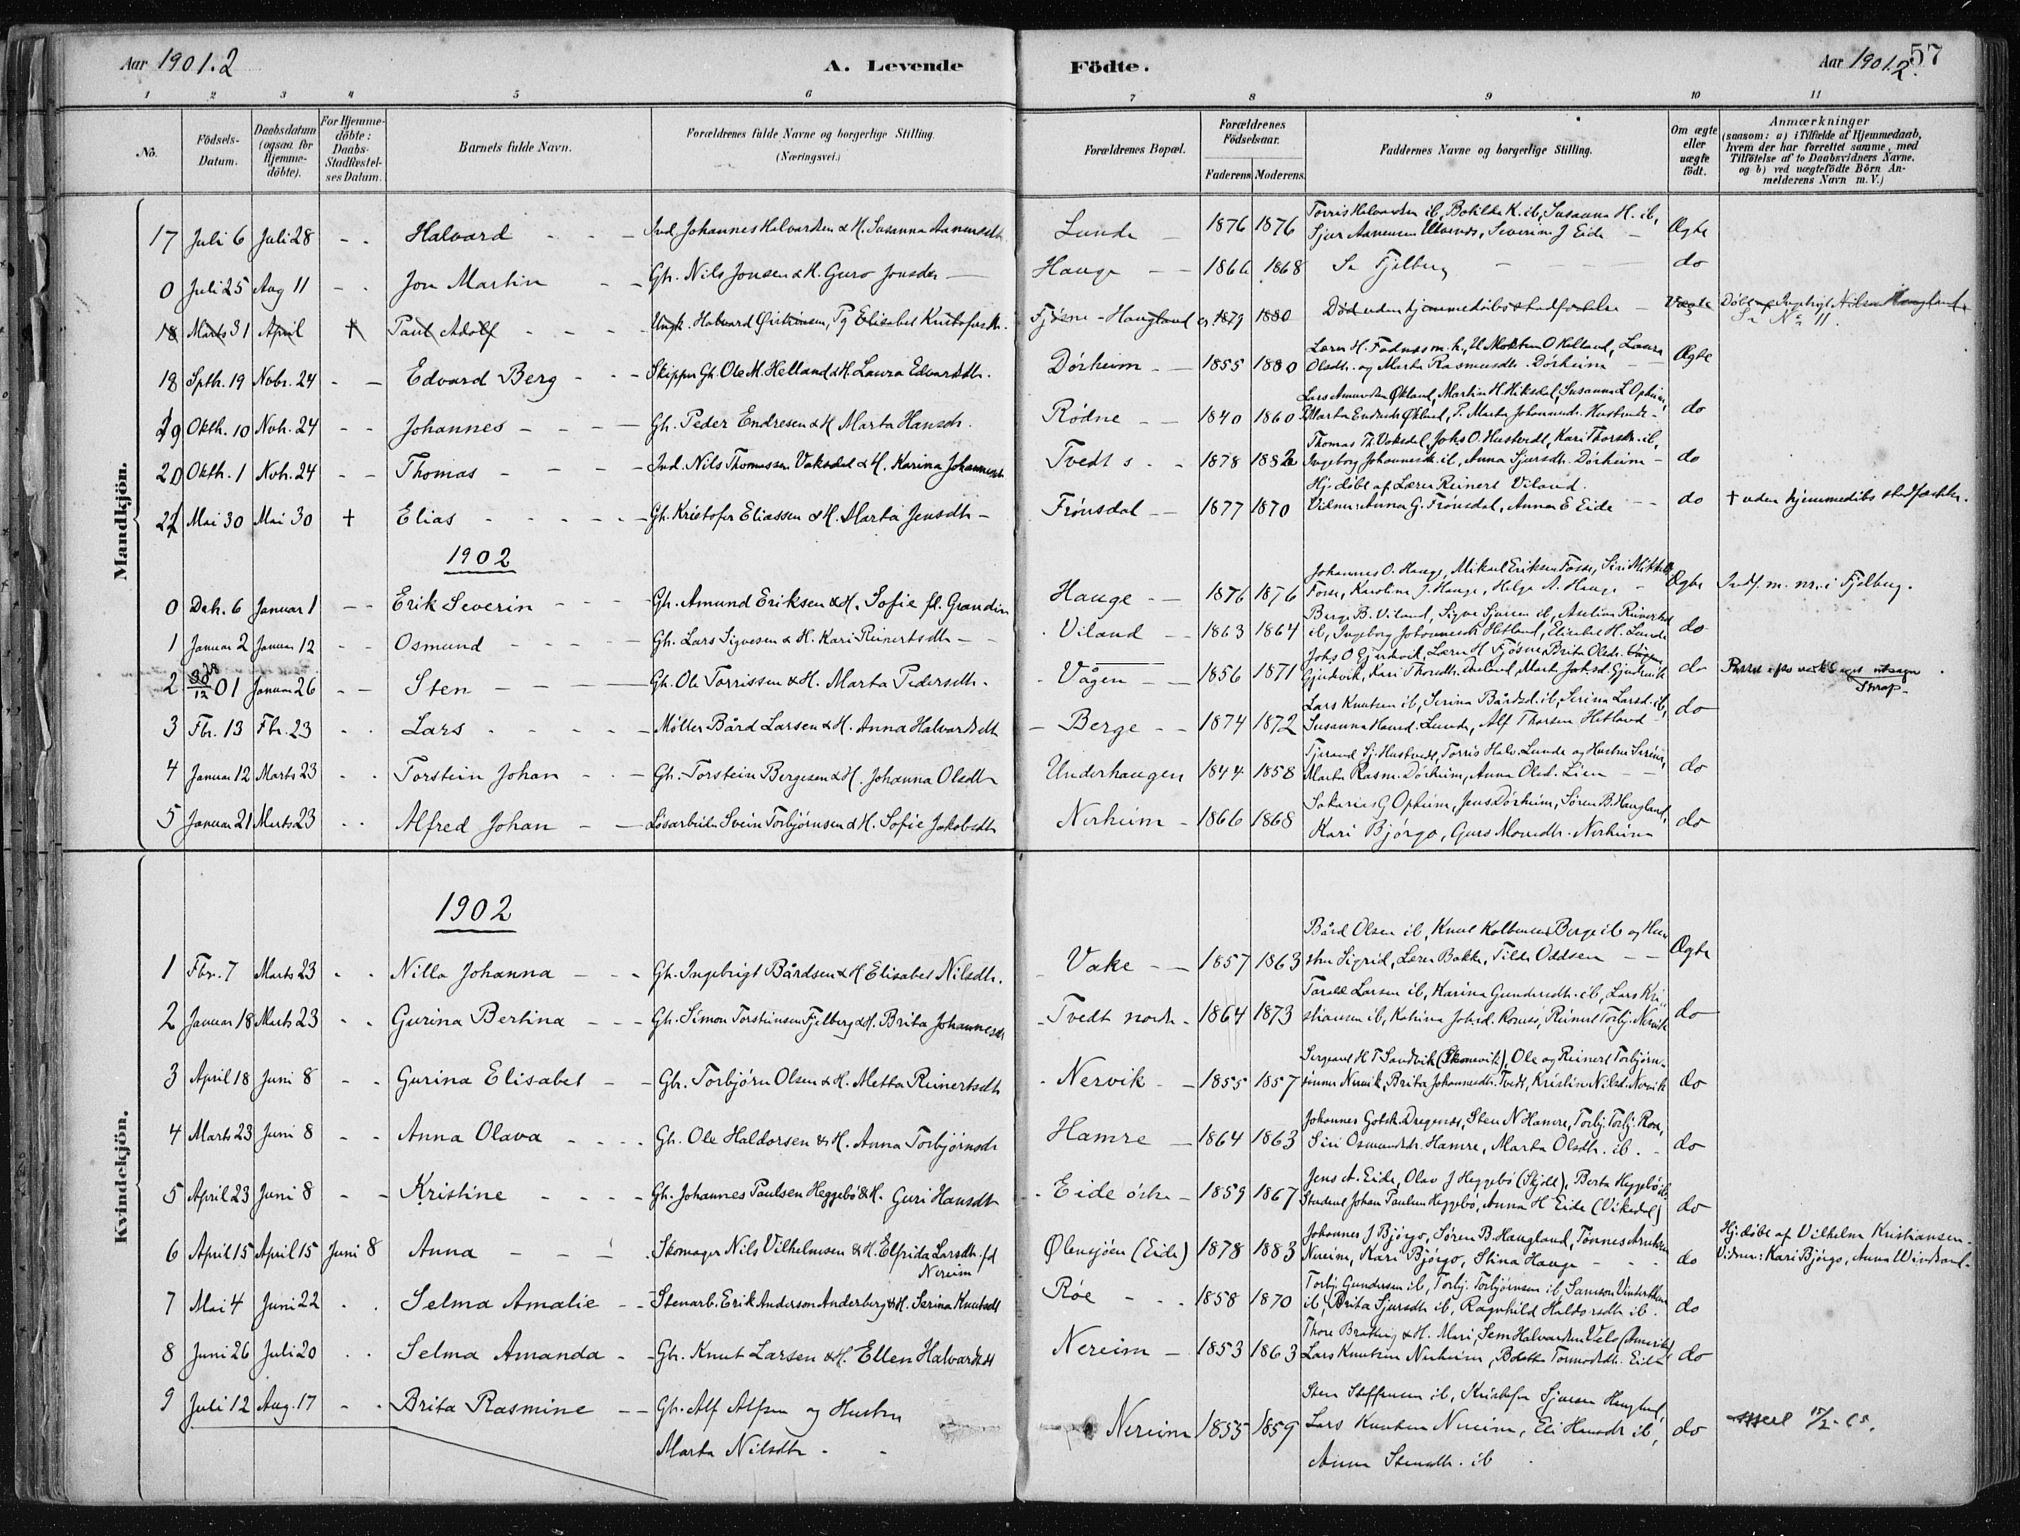 Aar 1901.2
A. Levende
Födte.
Aar 1901.2.
57
1 2 3 4 5 6 7 8 9 10 11
No.
Födsels-Datum.
Daabsdatum (ogsaa for Hjemme-döbte).
For Hjemme-döbte: Daabs-Stadfæstel-ses Datum.
Barnets fulde Navn.
Forældrenes fulde Navne og borgerlige Stilling. (Næringsvei.)
Forældrenes Bopæl.
Forældrenes Födselsaar.
Faderens Moderens.
Faddernes Navne og borgerlige Stilling.
Om ægte eller uægte födt.
Anmærkninger (saasom: a) i Tilfælde af Hjemmedaab, hvem der har forrettet samme, med Tilföielse af to Daabsvidners Navne, og b) ved uægtefödte Börn An-melderens Navn m. V.)
Mandkjön.
17 Juli 6 Juli 28 - - Halvard - - - Ind. Johannes Halvardsen & H. Susanna Aanensdtr. Lunde - 1876 1876 Torris Halvardsen ib, Botilda K. ib, Susanna H. ib, Sjur Aanensen Ulvenes, Severin J Eide - Ægte
0 Juli 25 Aug 11 - - Jon Martin - - Gb. Nils Jonsen & H. Guro Jonsdtr - Hauge - - 1866 1868 Se Fjelberg - - - do
18 Marts 31 April + Paul Adolf - - - - Ungk. Halvard Østensen, Pg Elisabet Kristofersdtr. Fjøsne - Haugland 1879 1880 Død uden hjemmedåbsstadfæstelse - Uægte Døbt af Ingebrigt Nilsen Haugland. Se No 11.
18 Spth. 19 Novbr. 24 - - Edvard Berg - - - Skipper Gb. Ole M. Helland & H. Laura Edvardsdtr. Dørheim - - 1855 1880 Lærer H. Fadnes m. h., U Morten O Helland, Laura Olsdtr. og Marta Rasmusdtr. Dørheim - Ægte
19 Oktb. 10 Novb. 24 - - Johannes - - - - Gb. Peder Endresen & H Marta Hansdtr. Rødne - - 1840 1860 Lars Amundsen Økland, Martin H. Miksdal, Susanna L Opheim, Marta Endresdtr Økland, P. Marta Johannesdr. Hustvedt - do
20 Oktb. 1 Novb. 24 - - Thomas - - - - Ind. Nils Thomassen Vaksdal & H. Karina Johannesdtr Tvedt s. - 1878 1882 Thomas Th. Vaksdal, Johs O. Hustvedt, Kari Thorsdr. ib, Ingeborg Johannesdr. ib, Anna Sjursdtr. Dørheim - do
21 Mai 30 Mai 30 + Elias - - - - - Gb. Kristofer Eliassen & H. Marta Jensdtr - Frønsdal - - 1877 1870 Hj. døbt af Lærer Reinert Viland. Vidner: Anna G. Frønsdal, Anna E Eide - - do + uden hjemmedåbs stadfæstelse.
1902
0 Deb. 6 Januar 1 - - Erik Severin - - - Gb. Amund Eriksen & H. Sofie f. Grandin Hauge - - 1876 1876 Johannes O. Hauge, Mikal Eriksen Fosse, Siri Mikkelsdtr Fosse, Karoline J. Hauge, Helga A. Hauge - Ægte Indf. m. nr. i Fjelberg.
1 Januar 2 Januar 12 - - Osmund - - - Gb. Lars Sigvesen & H. Kari Reinertsdtr - - Viland - - 1863 1864 Berge B. Viland, Sigve Sjursen ib, Reinertsd ib, Ingeborg Johannesdr Hetland, Elisabet H. Lunde do
2 12 01 Januar 26 - - Sten - - - - Gb. Ole Torrissen & H. Marta Pedersdtr. Vågen - - 1856 1871 Johs O Gjerdevik, Lærer H Fjøsne, Brita Olsdr. Vågen, Gjerdevik, Kari Thorsdtr. Marta Johsd. Gjerdevik do
3 Fbr. 13 Fbr. 23 - - Lars - - - - - Møller Bård Larsen & H. Anna Halvardsdtr - Berge - - 1874 1872 Lars Knutsen ib, Serina Bårdsd. ib, Serina Larsd. ib, Susanna Lunde, Alf Thorsen Hetland - do
4 Januar 12 Marts 23 - - Torstein Johan - - Gb. Torstein Bergesen & H. Johanna Olsdtr Underhaugen 1844 1858 Tjerand Sj. Hustvedt, Torris Halv. Lunde og Hustru Serine, Marta Rasm. Dørheim, Anna Olsd. Lien - - do
5 Januar 21 Marts 23 - - Alfred Johan - - Løsarbeider Svein Torbjørnsen & H. Sofie Jakobsdtr Nerheim - 1866 1868 Sakarias G Opheim, Jens Dørheim, Søren B. Haugland, Kari Bjørgo, Guro Monsdtr. Nerheim do
Kvindekjön.
1902
1 Fbr. 7 Marts 23 - - Nilla Johanna - - - Gb. Ingebrigt Bårdsen & H Elisabet Nilsdtr. - Vake - - 1857 1863 Bård Olsen ib, Knut Kolbensen Berge ib og Hu-stru Sigrid, Lærer Bakke, Tilde Oddsen - - Ægte
2 Januar 18 Marts 23 - - Gurina Bertina - - - Gb. Simon Torsteinsen Fjelberg & H. Brita Johannesdr - Tvedt nordr. - 1864 1873 Torall Larsen ib, Karina Gundersdtr. ib, Lars Kri-stiansen ib, Katrina Johsd. Romsa, Reinert Torbj. Nervik do
3 April 18 Juni 8 - - Gurina Elisabet - - Gb. Torbjørn Olsen & H. Metta Reinertsdtr - Nervik - - 1855 1857 Sergeant H T Sandvik (Skonevik), Ole og Reinert Torbjørn-sønner Nervik, Brita Johannesdtr. Tvedt, Kristin Nilsd. Nervik do
4 Marts 23 Juni 8 - - Anna Olava - - - - Gb. Ole Haldorsen & H. Anna Torbjørnsdr Hamre - 1864 1863 Johannes Gotsk. Dregenes, Sten N Hamre, Torbj. Torbj. Røe, Siri Osmundsdr. Hamre, Marta Olsdtr. ib. - do
5 April 23 Juni 8 - - Kristine - - - - Gb. Johannes Paulsen Heggebø & H. Guri Hansdtr - Eide östre - 1859 1867 Jens A. Eide, Olav J Heggebø (Skjold), Berta Heggebø ib, Student Johan Paulsen Heggebø, Anna H Eide (Vikedal) do
6 April 15 April 15 Juni 8 Anna - - - - Skomager Nils Vilhelmsen & H. Elfrida Larsdtr. fd Nereim Ølensjøen (Eide) 1878 1883 Johannes J Bjørgo, Søren B. Haugland, Tønnes Nereim, Kari Bjørgo, Stina Hauge - - - do Hj. døbt af Vilhelm Kristiansen - Vidner: Kari Bjørgo, Anna
7 Mai 4 Juni 22 - - Selma Amalie - - Stenarb. Erik Anderson Anderberg & H. Serina Knutsdt Røe - - - 1858 1870 Torbj. Gundersen ib, Torbj. Torbjørnsen ib, Samson ib, Brita Sjursdtr ib, Ragnhild Haldorsdtr ib. do
8 Juni 26 Juli 20 - - Selma Amanda - - Gb. Knut Larsen & H. Ellen Halvardsdt Nereim - 1853 1863 Thore & H. Mari, Sem Halvardsen (Amerika) Lars Knutsen Nerheim, Tormodsdtr. Eide do
9 Juli 12 Aug. 17 - - Brita Rasmine - - Gb. Alf Alfsen og Hustru Marta Nilsdtr - - Nereim 1855 1859 Sten Steffensen ib, Kristofer Sjursen Haugland, Lars Knutsen Nereim, Eli Hansdr ib, Anna Stensdtr. ib do